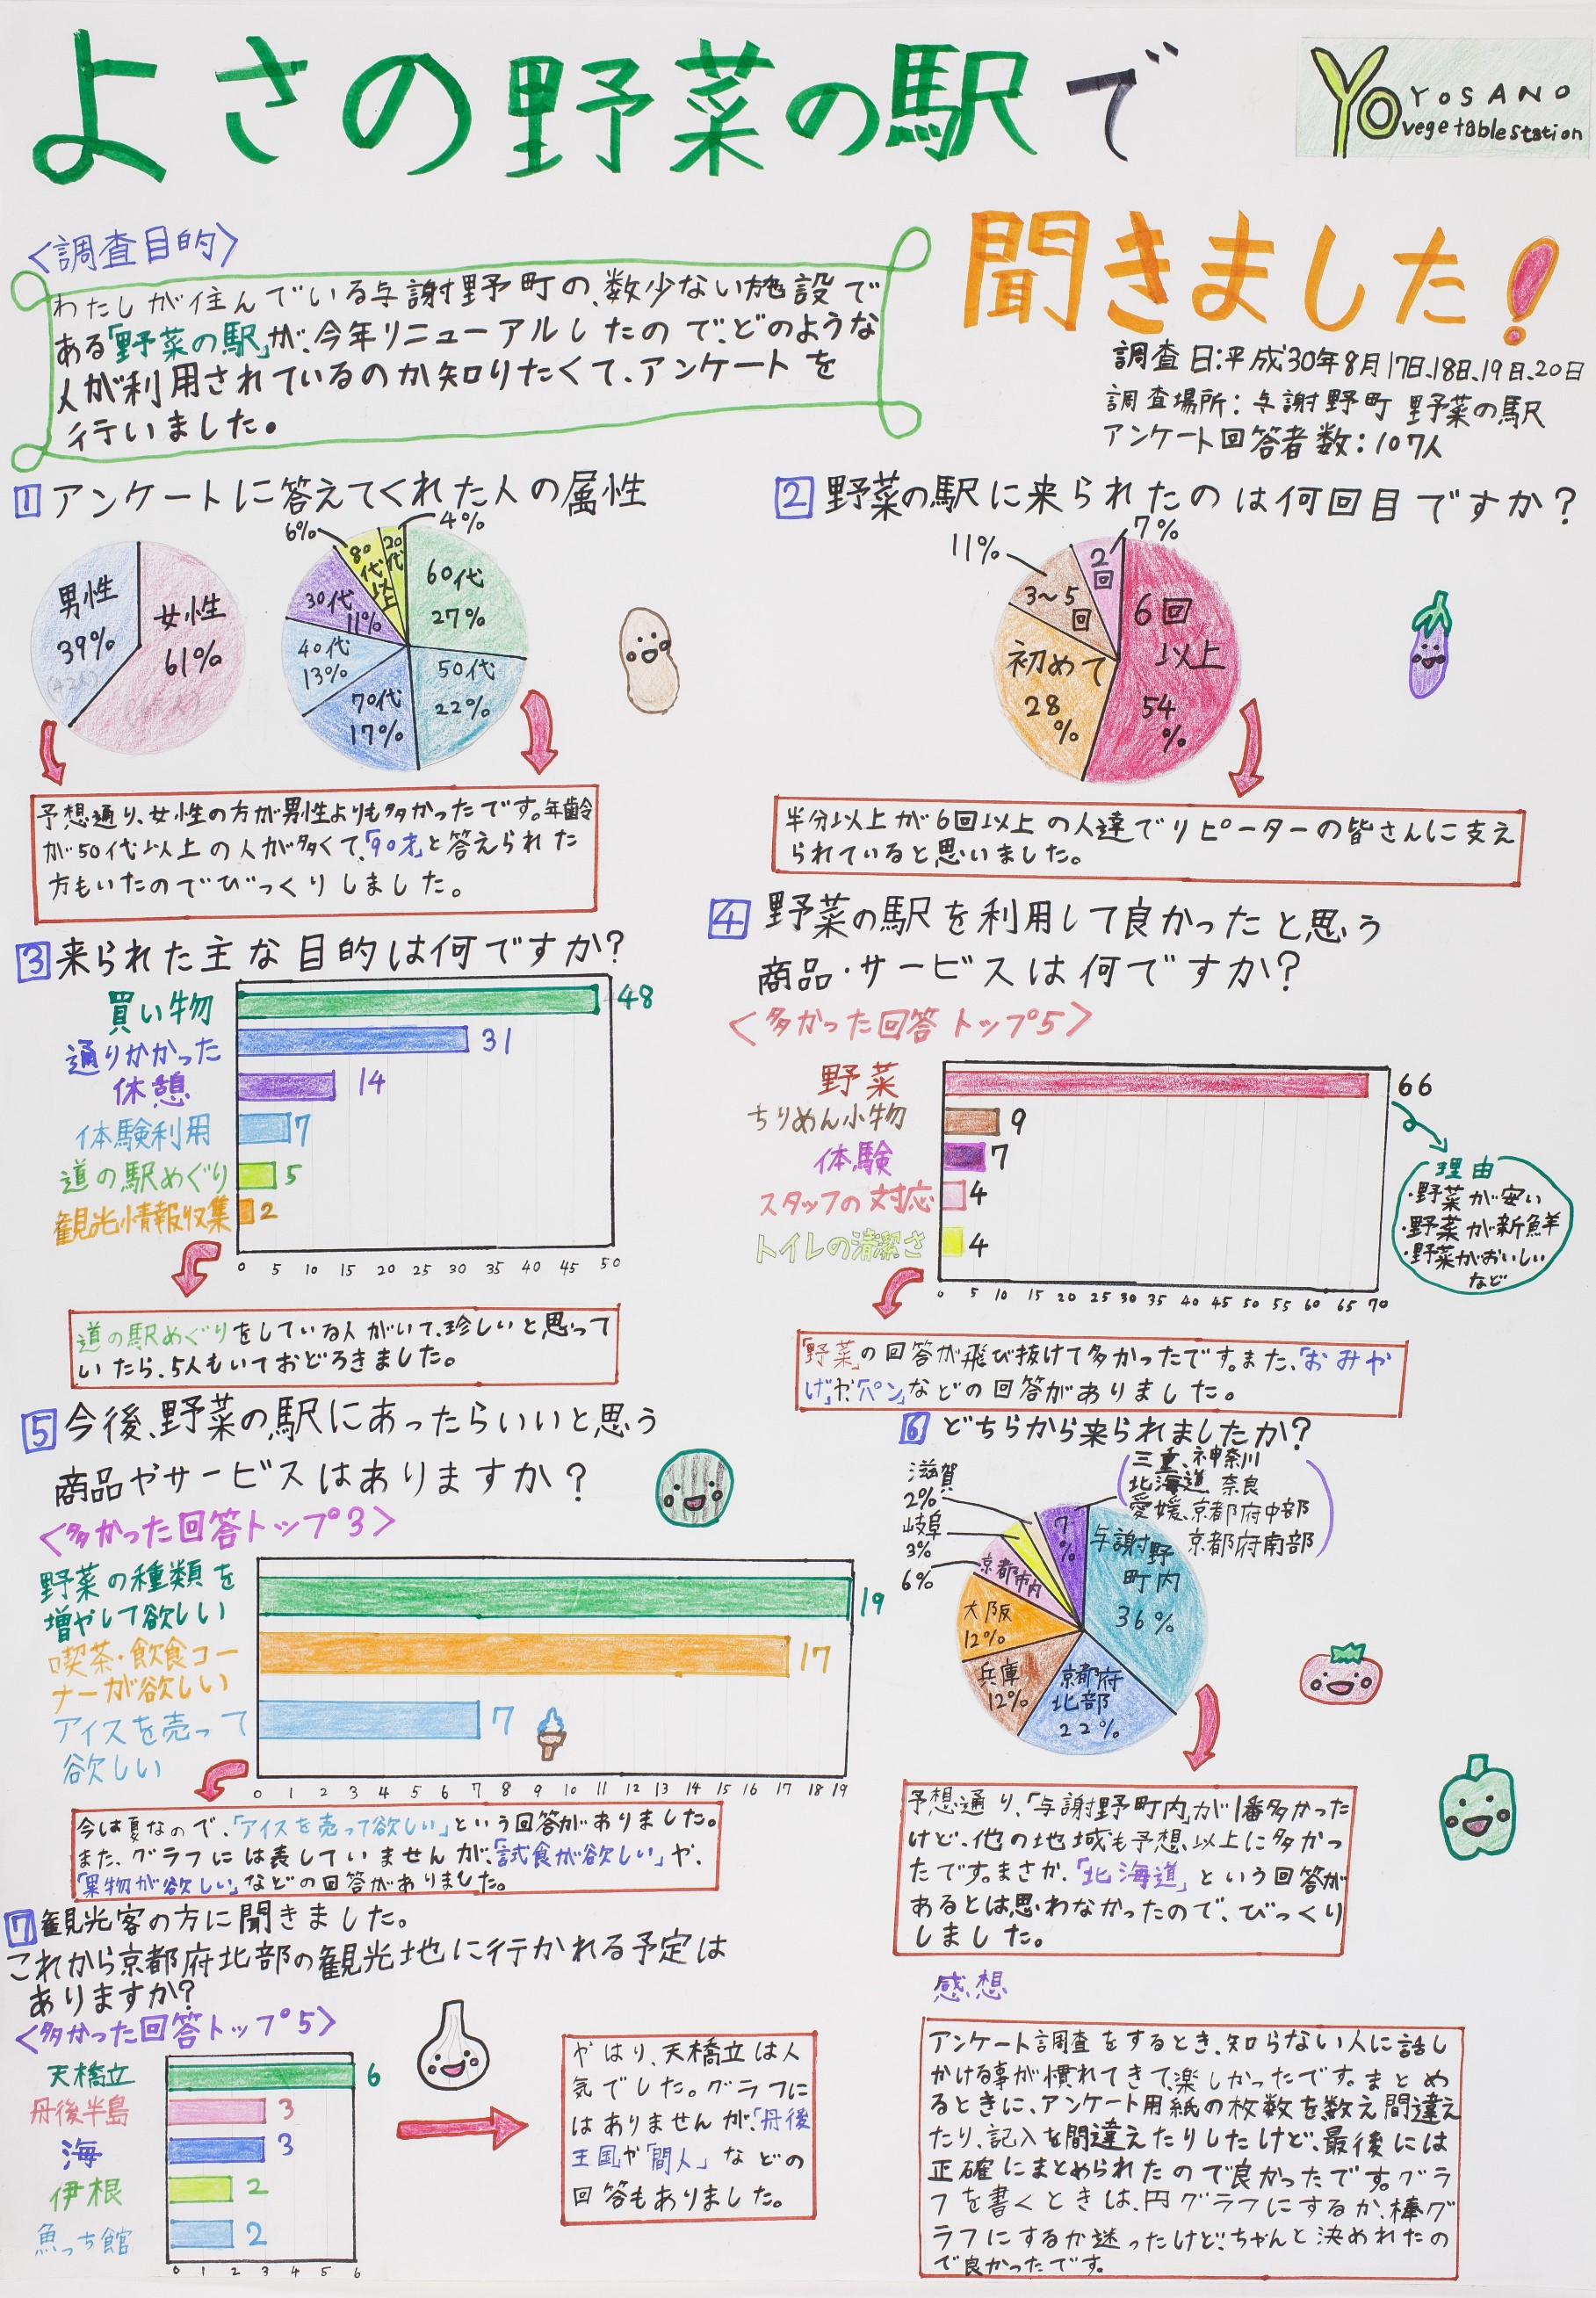 よさの野菜の駅で
YOSANO
vegetablestation
聞きました!
調査日:平成30年8月17日、18日、19日、20日
調査場所:与謝野町 野菜の駅
アンケート回答者数:107人
〈調査目的〉
わたしが住んでいる与謝野町の、数少ない施設で
ある「野菜の駅」が、今年リニューアルしたので、どのような
人が利用されているのか知りたくて、アンケートを
行いました。
1 アンケートに答えてくれた人の属性
男性
39%
女性
61%
60代
27%
50代
22%
70代
17%
40代
13%
30代
11%
80代以上
6%
20代
4%
予想通り、女性の方が男性よりも多かったです。年齢
が50代以上の人が多くて、「90才」と答えられた
方もいたのでびっくりしました。
2 野菜の駅に来られたのは何回目ですか?
6回
以上
54%
初めて
28%
3〜5回
11%
2回
7%
半分以上が6回以上の人達でリピーターの皆さんに支え
られていると思いました。
3 来られた主な目的は何ですか?
買い物 48
通りかかった 31
休憩 14
体験利用 7
道の駅めぐり 5
観光情報収集 2
0 5 10 15 20 25 30 35 40 45 50
道の駅めぐりをしている人がいて、珍しいと思って
いたら、5人もいておどろきました。
4 野菜の駅を利用して良かったと思う
商品・サービスは何ですか?
〈多かった回答トップ5〉
野菜 66
ちりめん小物 9
体験 7
スタッフの対応 4
トイレの清潔さ 4
0 5 10 15 20 25 30 35 40 45 50 55 60 65 70
理由
・野菜が安い
・野菜が新鮮
・野菜がおいしい
など
「野菜」の回答が飛び抜けて多かったです。また、「おみや
げ」や「パン」などの回答がありました。
5 今後、野菜の駅にあったらいいと思う
商品やサービスはありますか?
〈多かった回答トップ3〉
野菜の種類を
増やして欲しい 19
喫茶・飲食コー
ナーが欲しい 17
アイスを売って
欲しい 7
0 1 2 3 4 5 6 7 8 9 10 11 12 13 14 15 16 17 18 19
今は夏なので、「アイスを売って欲しい」という回答がありました。
また、グラフには表していませんが、「試食が欲しい」や、
「果物が欲しい」などの回答がありました。
6 どちらから来られましたか?
三重、神奈川
北海道、奈良
愛媛、京都府中部
京都府南部
7%
与謝野
町内
36%
京都府
北部
22%
兵庫
12%
大阪
12%
京都市内
6%
岐阜
3%
滋賀
2%
予想通り、「与謝野町内」が1番多かった
けど、他の地域も予想以上に多かっ
たです。まさか、「北海道」という回答が
あるとは思わなかったので、びっくり
しました。
7 観光客の方に聞きました。
これから京都府北部の観光地に行かれる予定は
ありますか?
〈多かった回答トップ5〉
天橋立 6
丹後半島 3
海 3
伊根 2
魚っち館 2
0 1 2 3 4 5 6
やはり、天橋立は人
気でした。グラフに
はありませんが、「丹後
王国」や「間人」などの
回答もありました。
感想
アンケート調査をするとき、知らない人に話し
かける事が慣れてきて、楽しかったです。まとめ
るときに、アンケート用紙の枚数を数え間違え
たり、記入を間違えたりしたけど、最後には
正確にまとめられたので良かったです。グラ
フを書くときは、円グラフにするか、棒グ
ラフにするか迷ったけど、ちゃんと決めれたの
で良かったです。